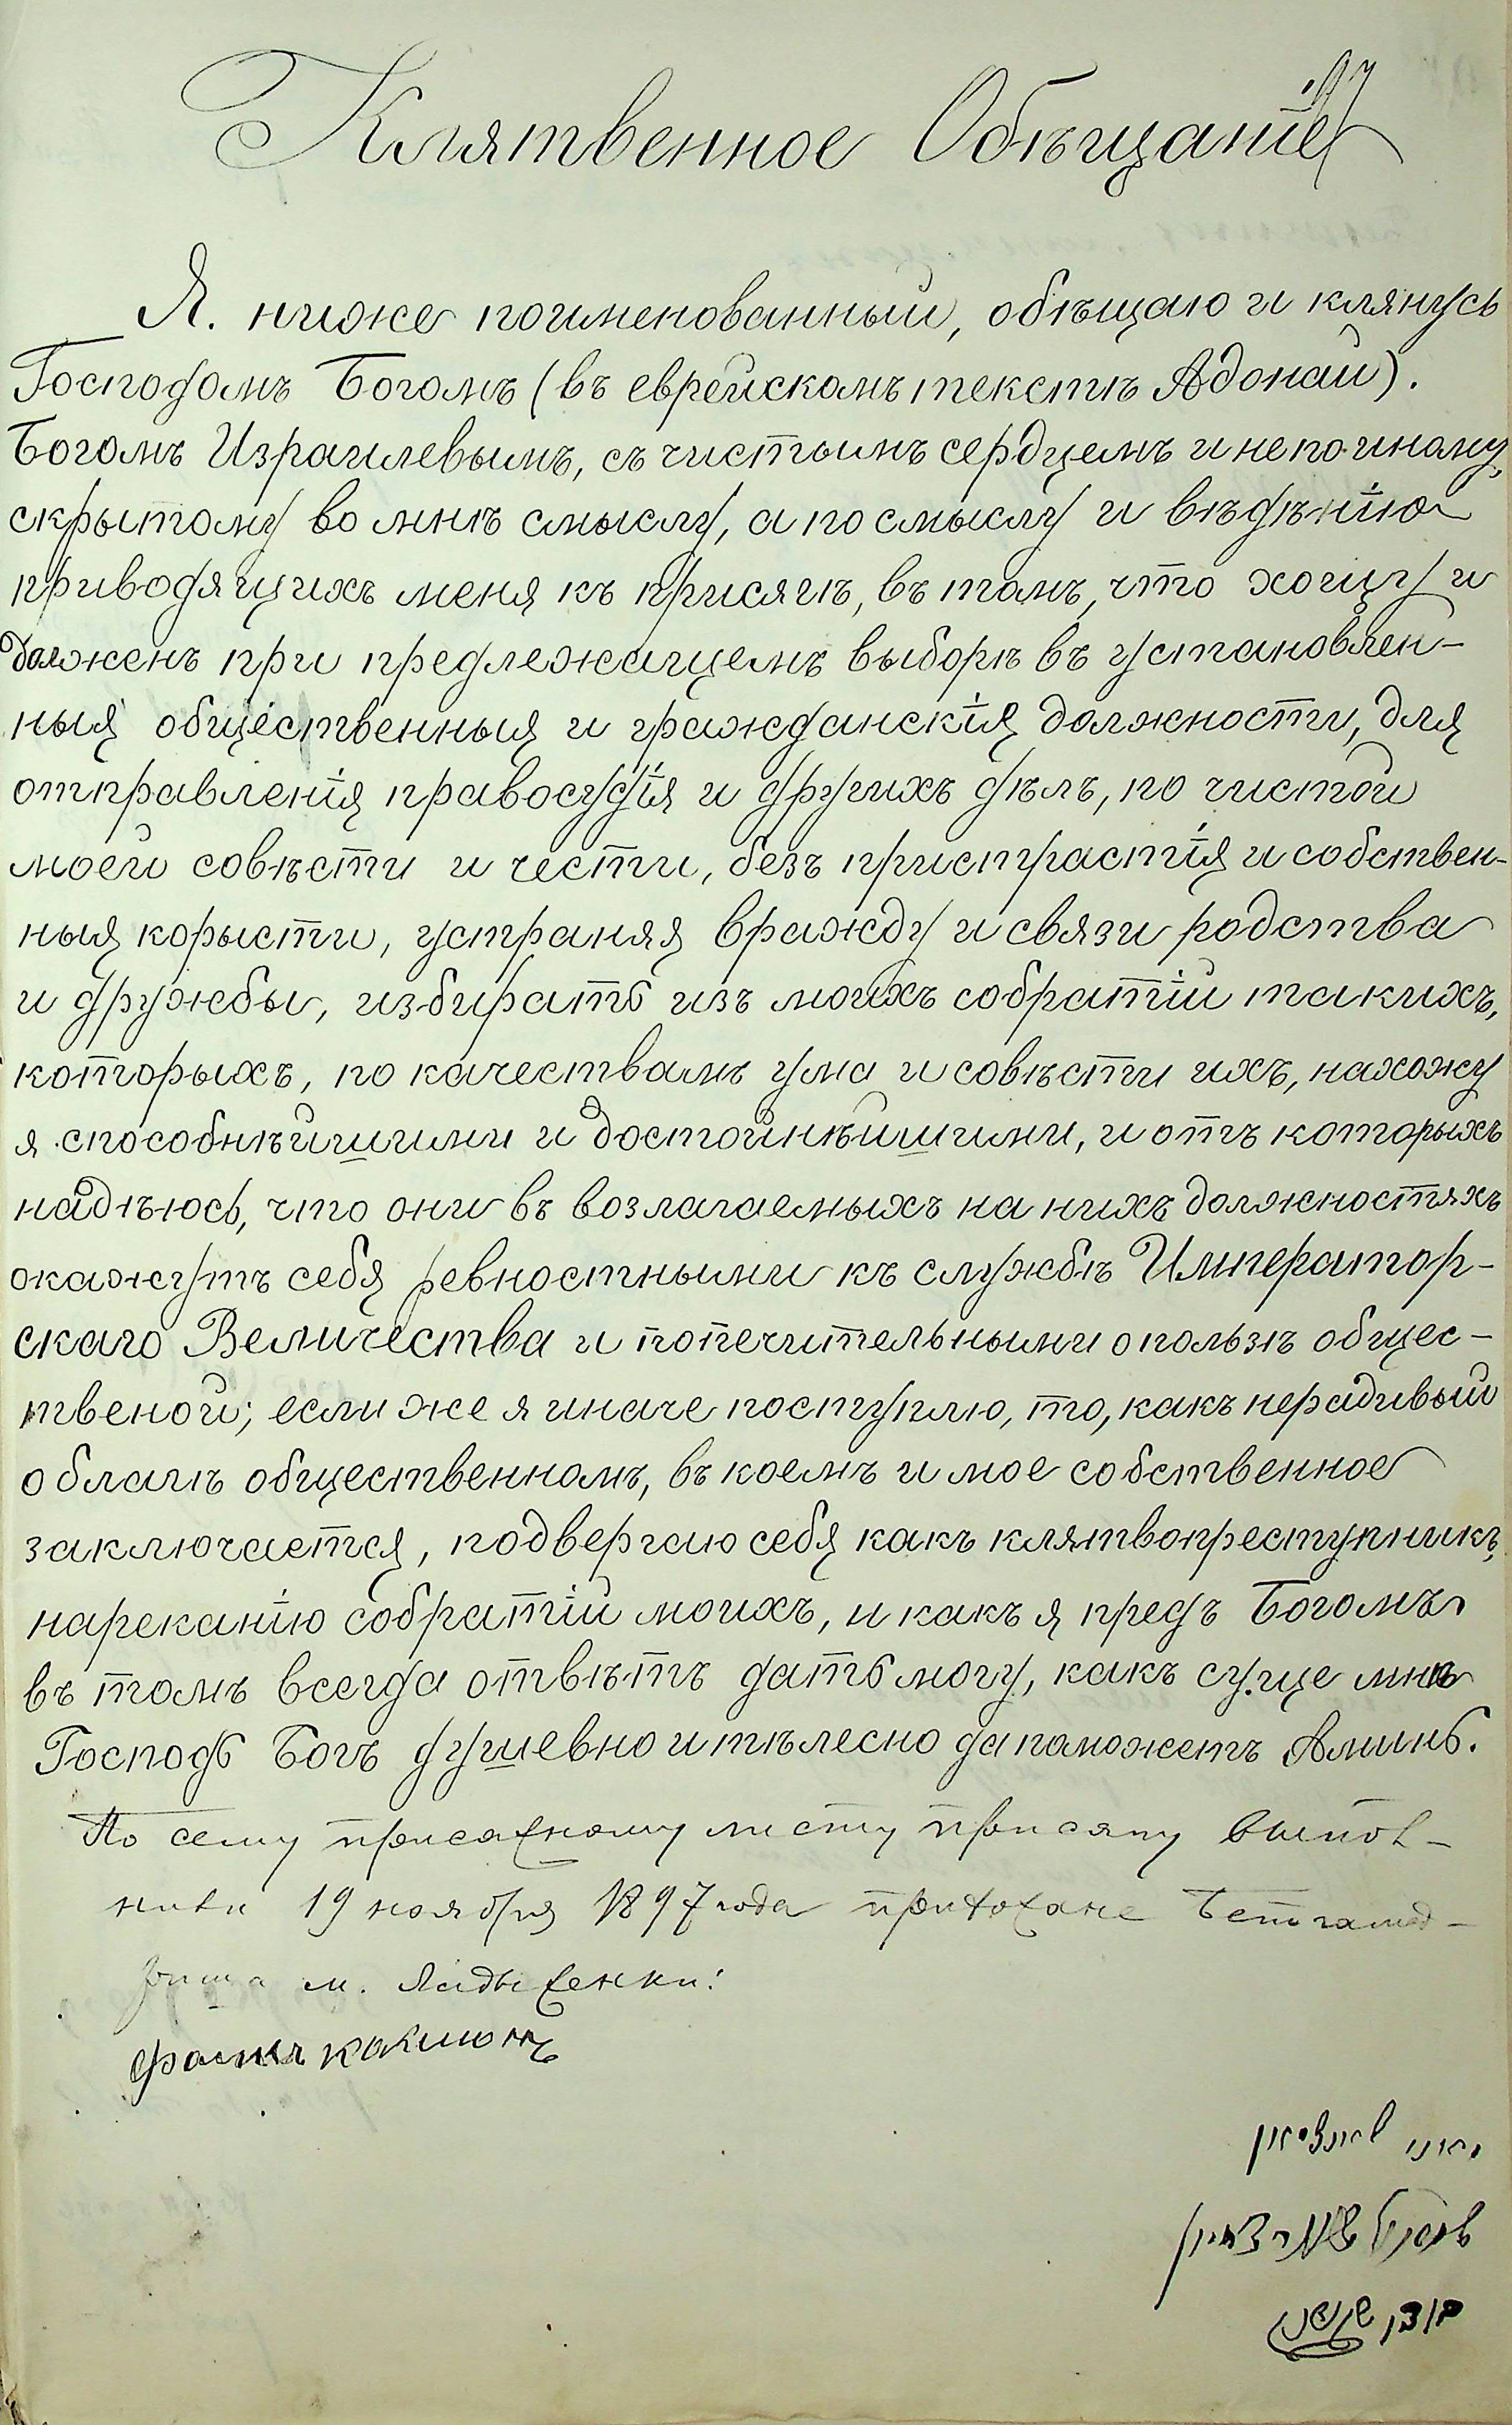 Клятвенное Обѣщанiе
Я. ниже поименованный, обѣщаю и клянусь
Господомъ Богомъ (въ еврейскомъ текстѣ Адонаи).
Богомъ Израилевымъ, съ чистымъ сердцемъ и не по иному,
скрытому во мнѣ смыслу, а по смыслу и вѣдѣнiю
приводящихъ меня къ присягѣ, въ томъ, что хощу и
долженъ при предлежащемъ выборѣ въ установлен-
ныя общественныя и гражданскiя должности, для
отправленiя правосудiя и другихъ дѣлъ, по чистой
моей совѣсти и чести, безъ пристрастiя и собствен-
ныя корысти, устраняя вражду и связи родства
и дружбы, избирать изъ моихъ собратiй такихъ,
которыхъ, по качествамъ ума и совѣсти ихъ, нахожу
я способнѣйшими и достойнѣйшими, и отъ которыхъ
надѣюсь, что они въ возлагаемыхъ на нихъ должностяхъ
окажутъ себя ревностными къ службѣ Император-
скаго Величества и попечительными о пользѣ общес-
твеной; если же я иначе поступлю, то, какъ нерадивый
о благѣ общественномъ, въ коемъ и мое собственное
заключается, подвергаю себя какъ клятвопреступникъ,
нареканiю собратiй моихъ, и какъ я предъ Богомъ
въ томъ всегда отвѣтъ дать могу, какъ суще мнѣ
Господь Богъ душевно и тѣлесно да поможетъ Аминь.
По сему присяжному листу присягу выпол-
нили 19 ноября 1897 года прихожане Бетгамед-
риша м. Ладыженки: